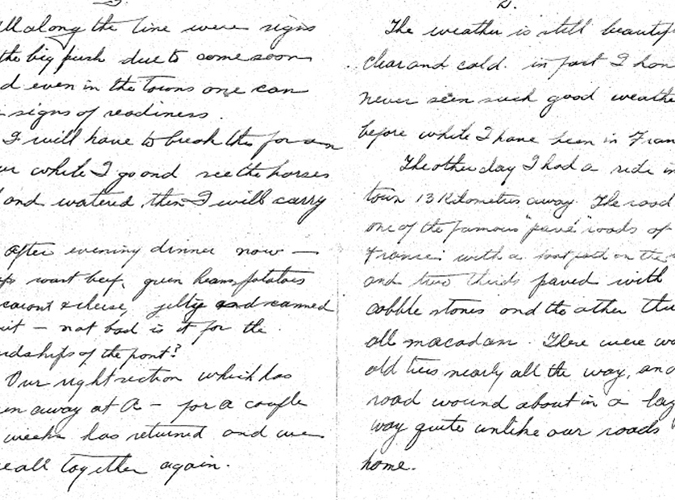 3.
all along the line were signs
the big push due to come soon
d even in the towns one can
signs of readiness.
I will have to break this for an
ur while I go and see the horses
d and watered, then I will carry
After evening dinner now —
roast beef, green beans, potatoes
& cheese, jelly and canned
uit — not bad is it for the
rdships of the front?
Our right section which has
en away at A — for a couple
weeks has returned and we
re all together again.
2.
The weather is still beautif
clear and cold. in fact I hav
never seen such good weathe
before while I have been in Fran
The other day I had a ride in
town 13 Kilometres away. The road
one of the famous "pavé" roads of
France with a foot path on the
and two thirds paved with
cobble stones and the other thi
all macadam. There were wo
old trees nearly all the way, and
road wound about in a lazy
way quite unlike our roads
home.